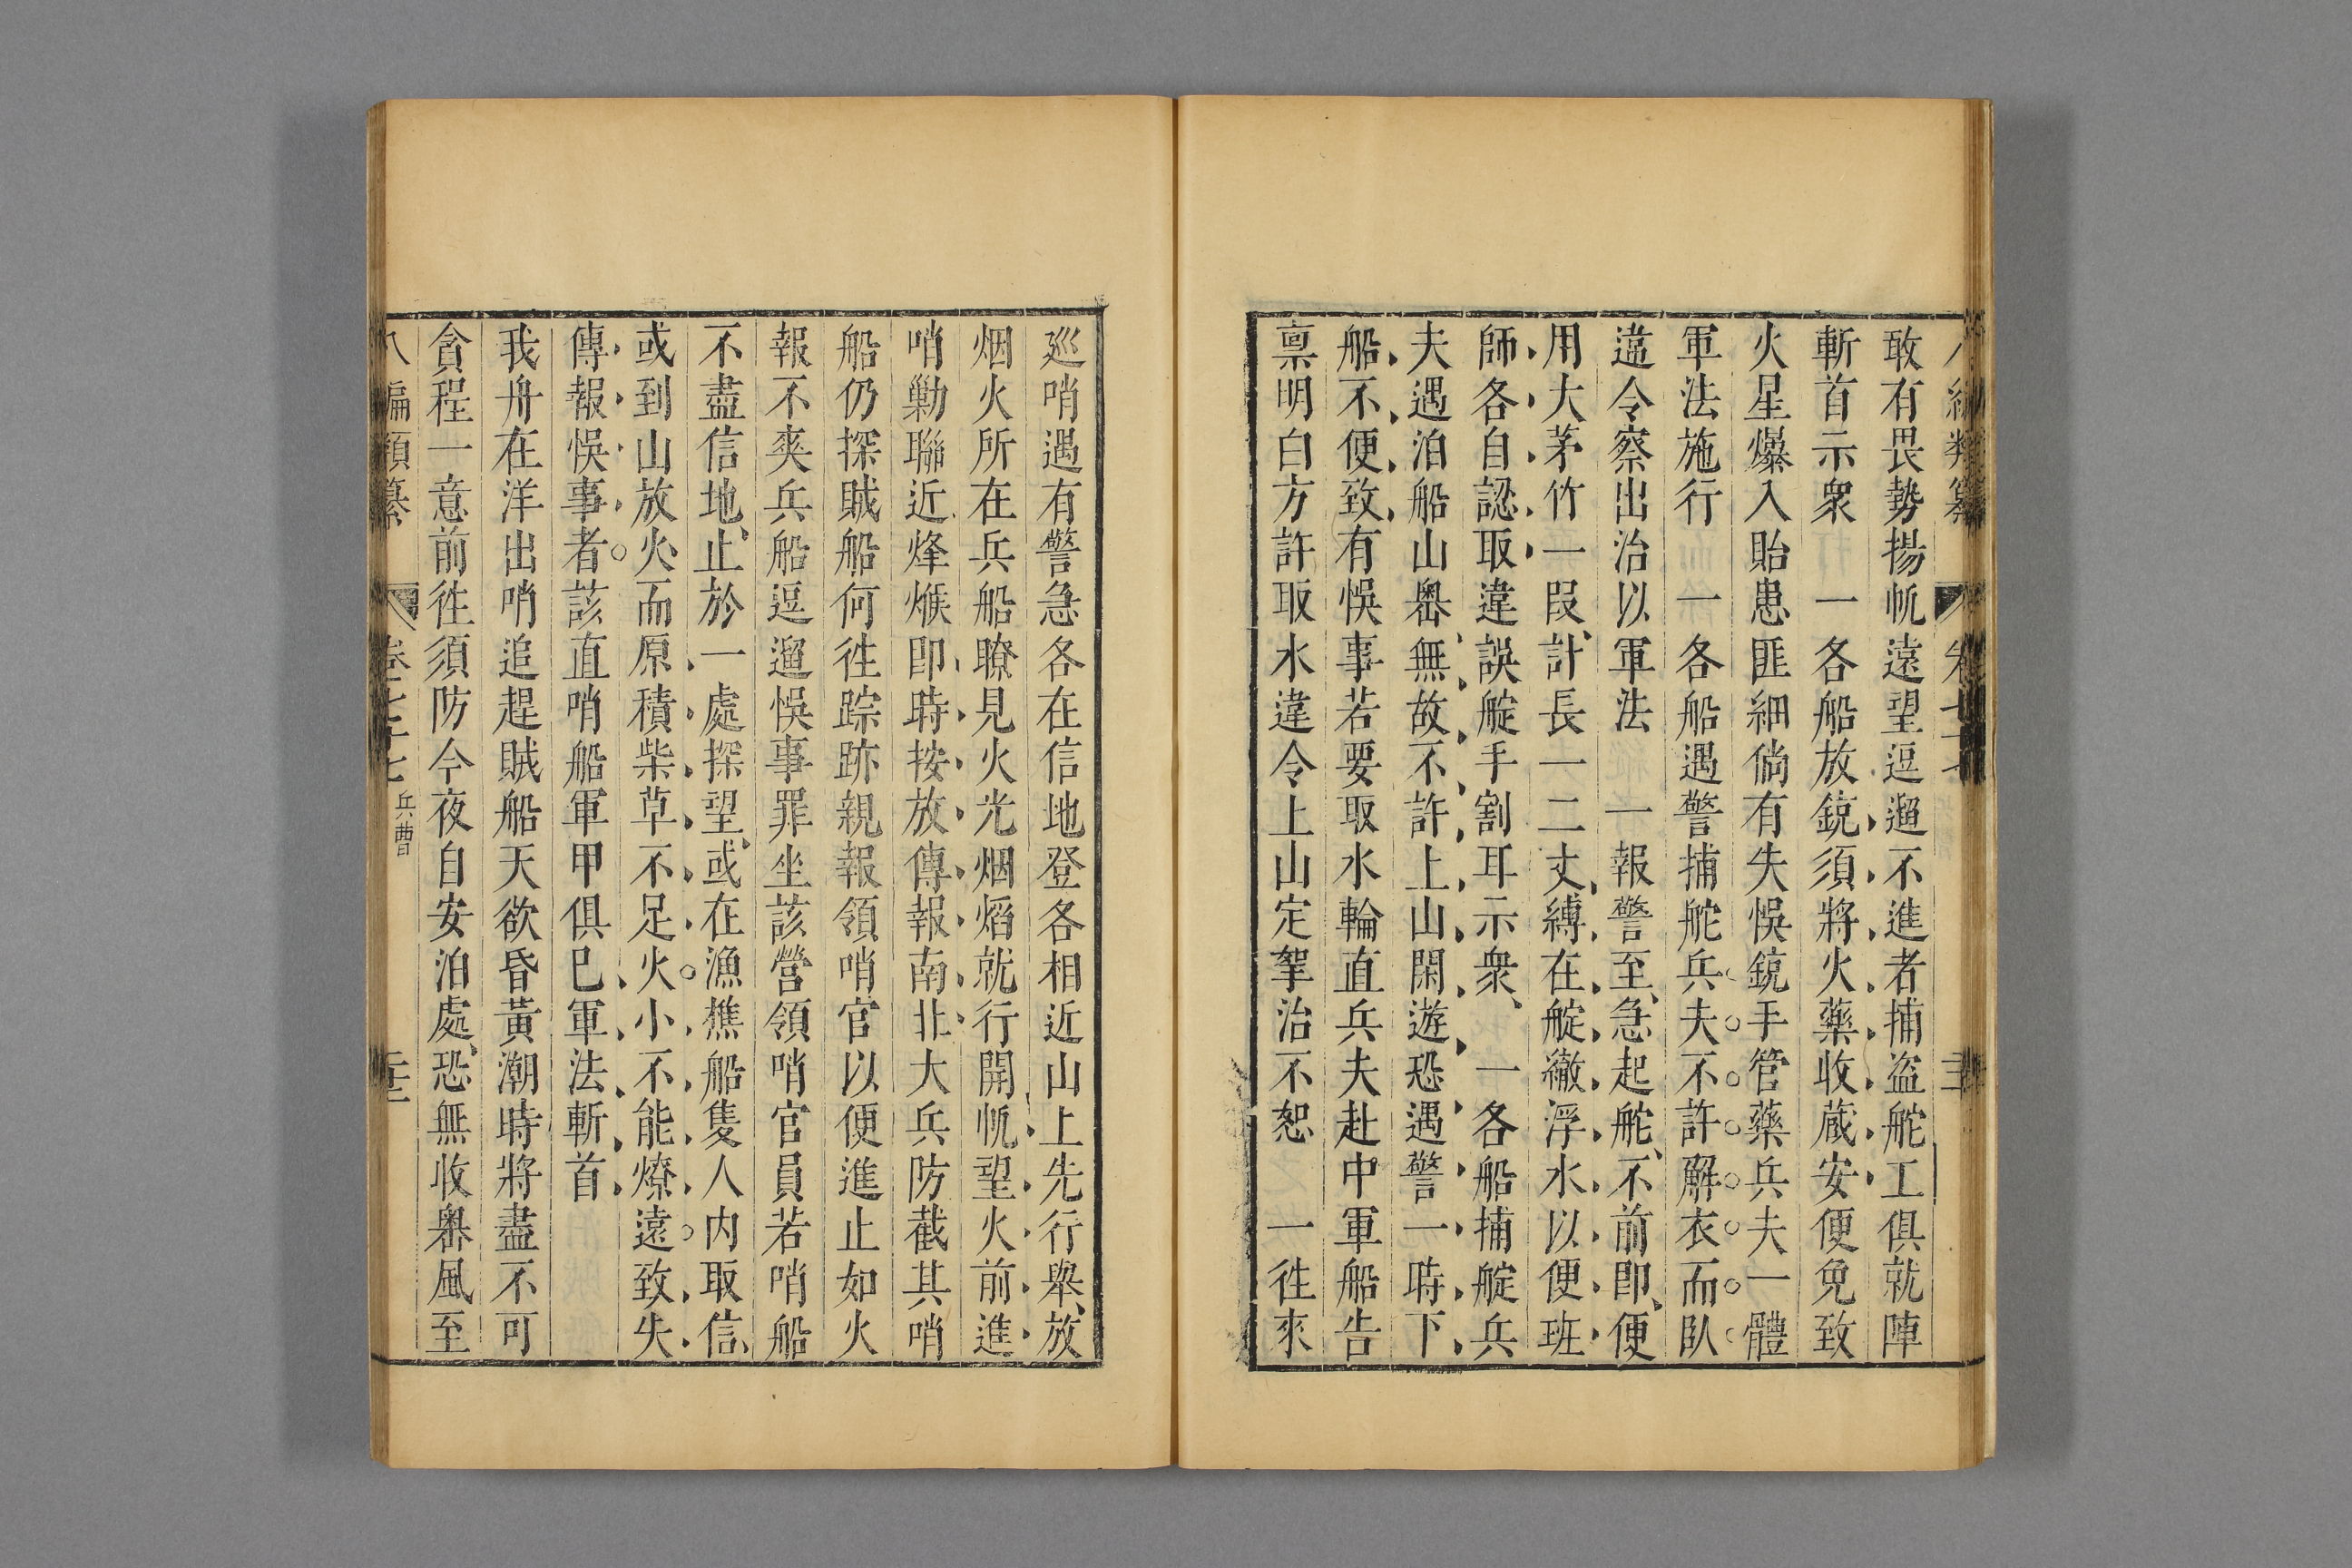 敢有畏勢揚帆遠望逗遛不進者捕盗舵工俱就陣
斬首示衆　一各船放銃須將火藥收蔵安便免致
火星爆入貽患匪細倘有失悞銃手管藥兵夫一體
軍法施行　一各船遇警捕舵兵夫不許解衣而臥
違令察出治以軍法　一報警至急起舵不前即便
用大茅竹一段計長一二丈縛在艇徹浮水以便班
師各自認取違誤艇手割耳示衆　一各船捕艇兵
夫遇泊船山嶴無故不許上山閑遊恐遇警一時下
船不便致有悞事若要取水輪直兵夫赴中軍船告
禀明白方許取水違令上山定拏治不恕　一徃來
巡哨遇有警急各在信地登各相近山上先行舉放
烟火所在兵船瞭見火光烟熖就行開帆望火前進
哨勦聯近烽堠即時按放傳報南北大兵防截其哨
船仍探賊船何徃踪跡親報領哨官以便進止如火
報不爽兵船逗遛悞事罪坐該營領哨官員若哨船
不盡信地止於一處探望或在漁樵船隻人内取信
或到山放火而原積柴草不足火小不能燎遠致失
傳報悞事者該直哨船軍甲俱巳軍法斬首
我舟在洋出哨追趕賊船天欲昏黃潮時將盡不可
貪程一意前徃須防今夜自安泊處恐無收嶴風至
八編類纂　卷七十七　兵曹